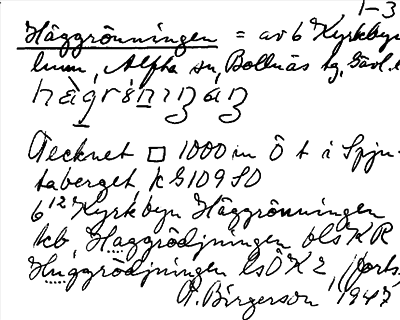 1-3
Häggrönningen = av 6² Kyrkbyn
lunn, Alfta sn, Bollnäs tg, Gävl. l
hägrö́niŋaŋ
Tecknet □ 1000 m Ö t i Spju-
taberget, kG109SO
6¹² Kyrkbyn Häggrönningen
kb, Haggrödjningen blsKR
Huggrödjningen lsÖK2, (forts.
A. Birgerson 1947